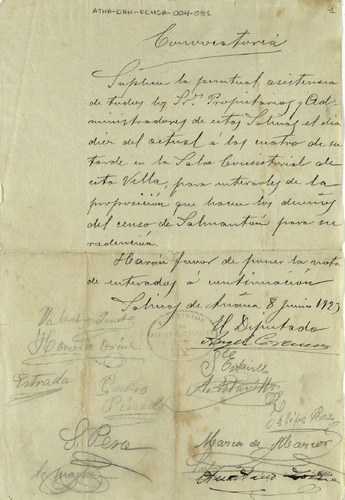 ATHA-DAH-FCHSA-004-081
1
Convocatoria
Suplica la puntual asistencia
de todos los Sres. Propietarios y Ad-
ministradores de estas Salinas el dia
diez del actual á las cuatro de su
tarde en la Sala Consistorial de
esta Villa, para enterarles de la
proposición que hacen los dueños
del censo de Salmantón para su
redención.
Harán favor de poner la nota
de enterados á continuación
Salinas de Añana 8 Junio 1923
El Diputado
Angel
Valentin
Honorio
Estrada
Pedro
S. Pera
Marcos de